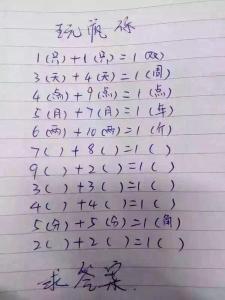 玩疯你
1(只)+1(只)=1(双)
3(天)+4(天)=1(周)
4(点)+9(点)=1(点)
5(月)+7(月)=1(年)
6(两)+10(两)=1(斤)
7( )+8( )=1( )
9( )+2( )=1( )
3( )+3( )=1( )
4( )+4( )=1( )
5(分)+5(分)=1(角)
2( )+2( )=1( )
求答案